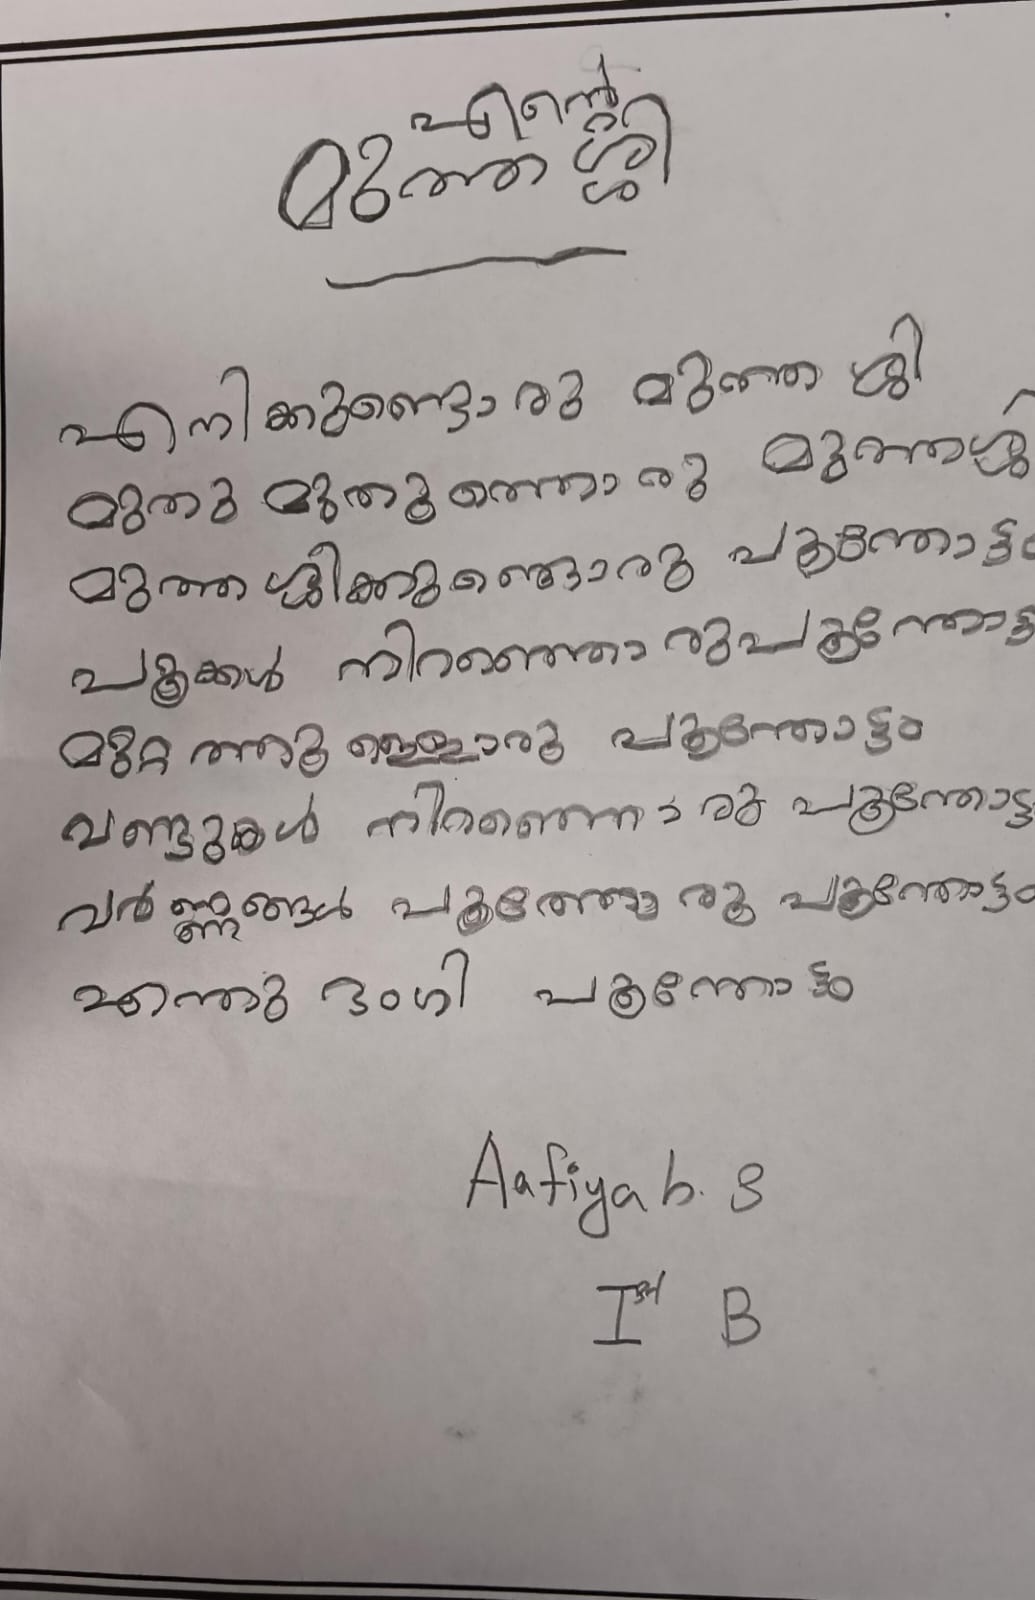 എന്റെ
മുത്തശ്ശി
എനിക്കുണ്ടൊരു മുത്തശ്ശി
മുതു മുതുത്തൊരു മുത്തശ്ശി
മുത്തശ്ശിക്കുണ്ടൊരു പൂന്തോട്ടം
പൂക്കൾ നിറഞ്ഞൊരുപൂന്തോട്ടം
മുറ്റത്തുള്ളൊരു പൂന്തോട്ടം
വണ്ടുകൾ നിറഞ്ഞൊരു പൂന്തോട്ടം
വർണ്ണങ്ങൾ പൂത്തൊരു പൂന്തോട്ടം
എന്തു ഭംഗി പൂന്തോട്ടം
Aafiyah. S
Ist B